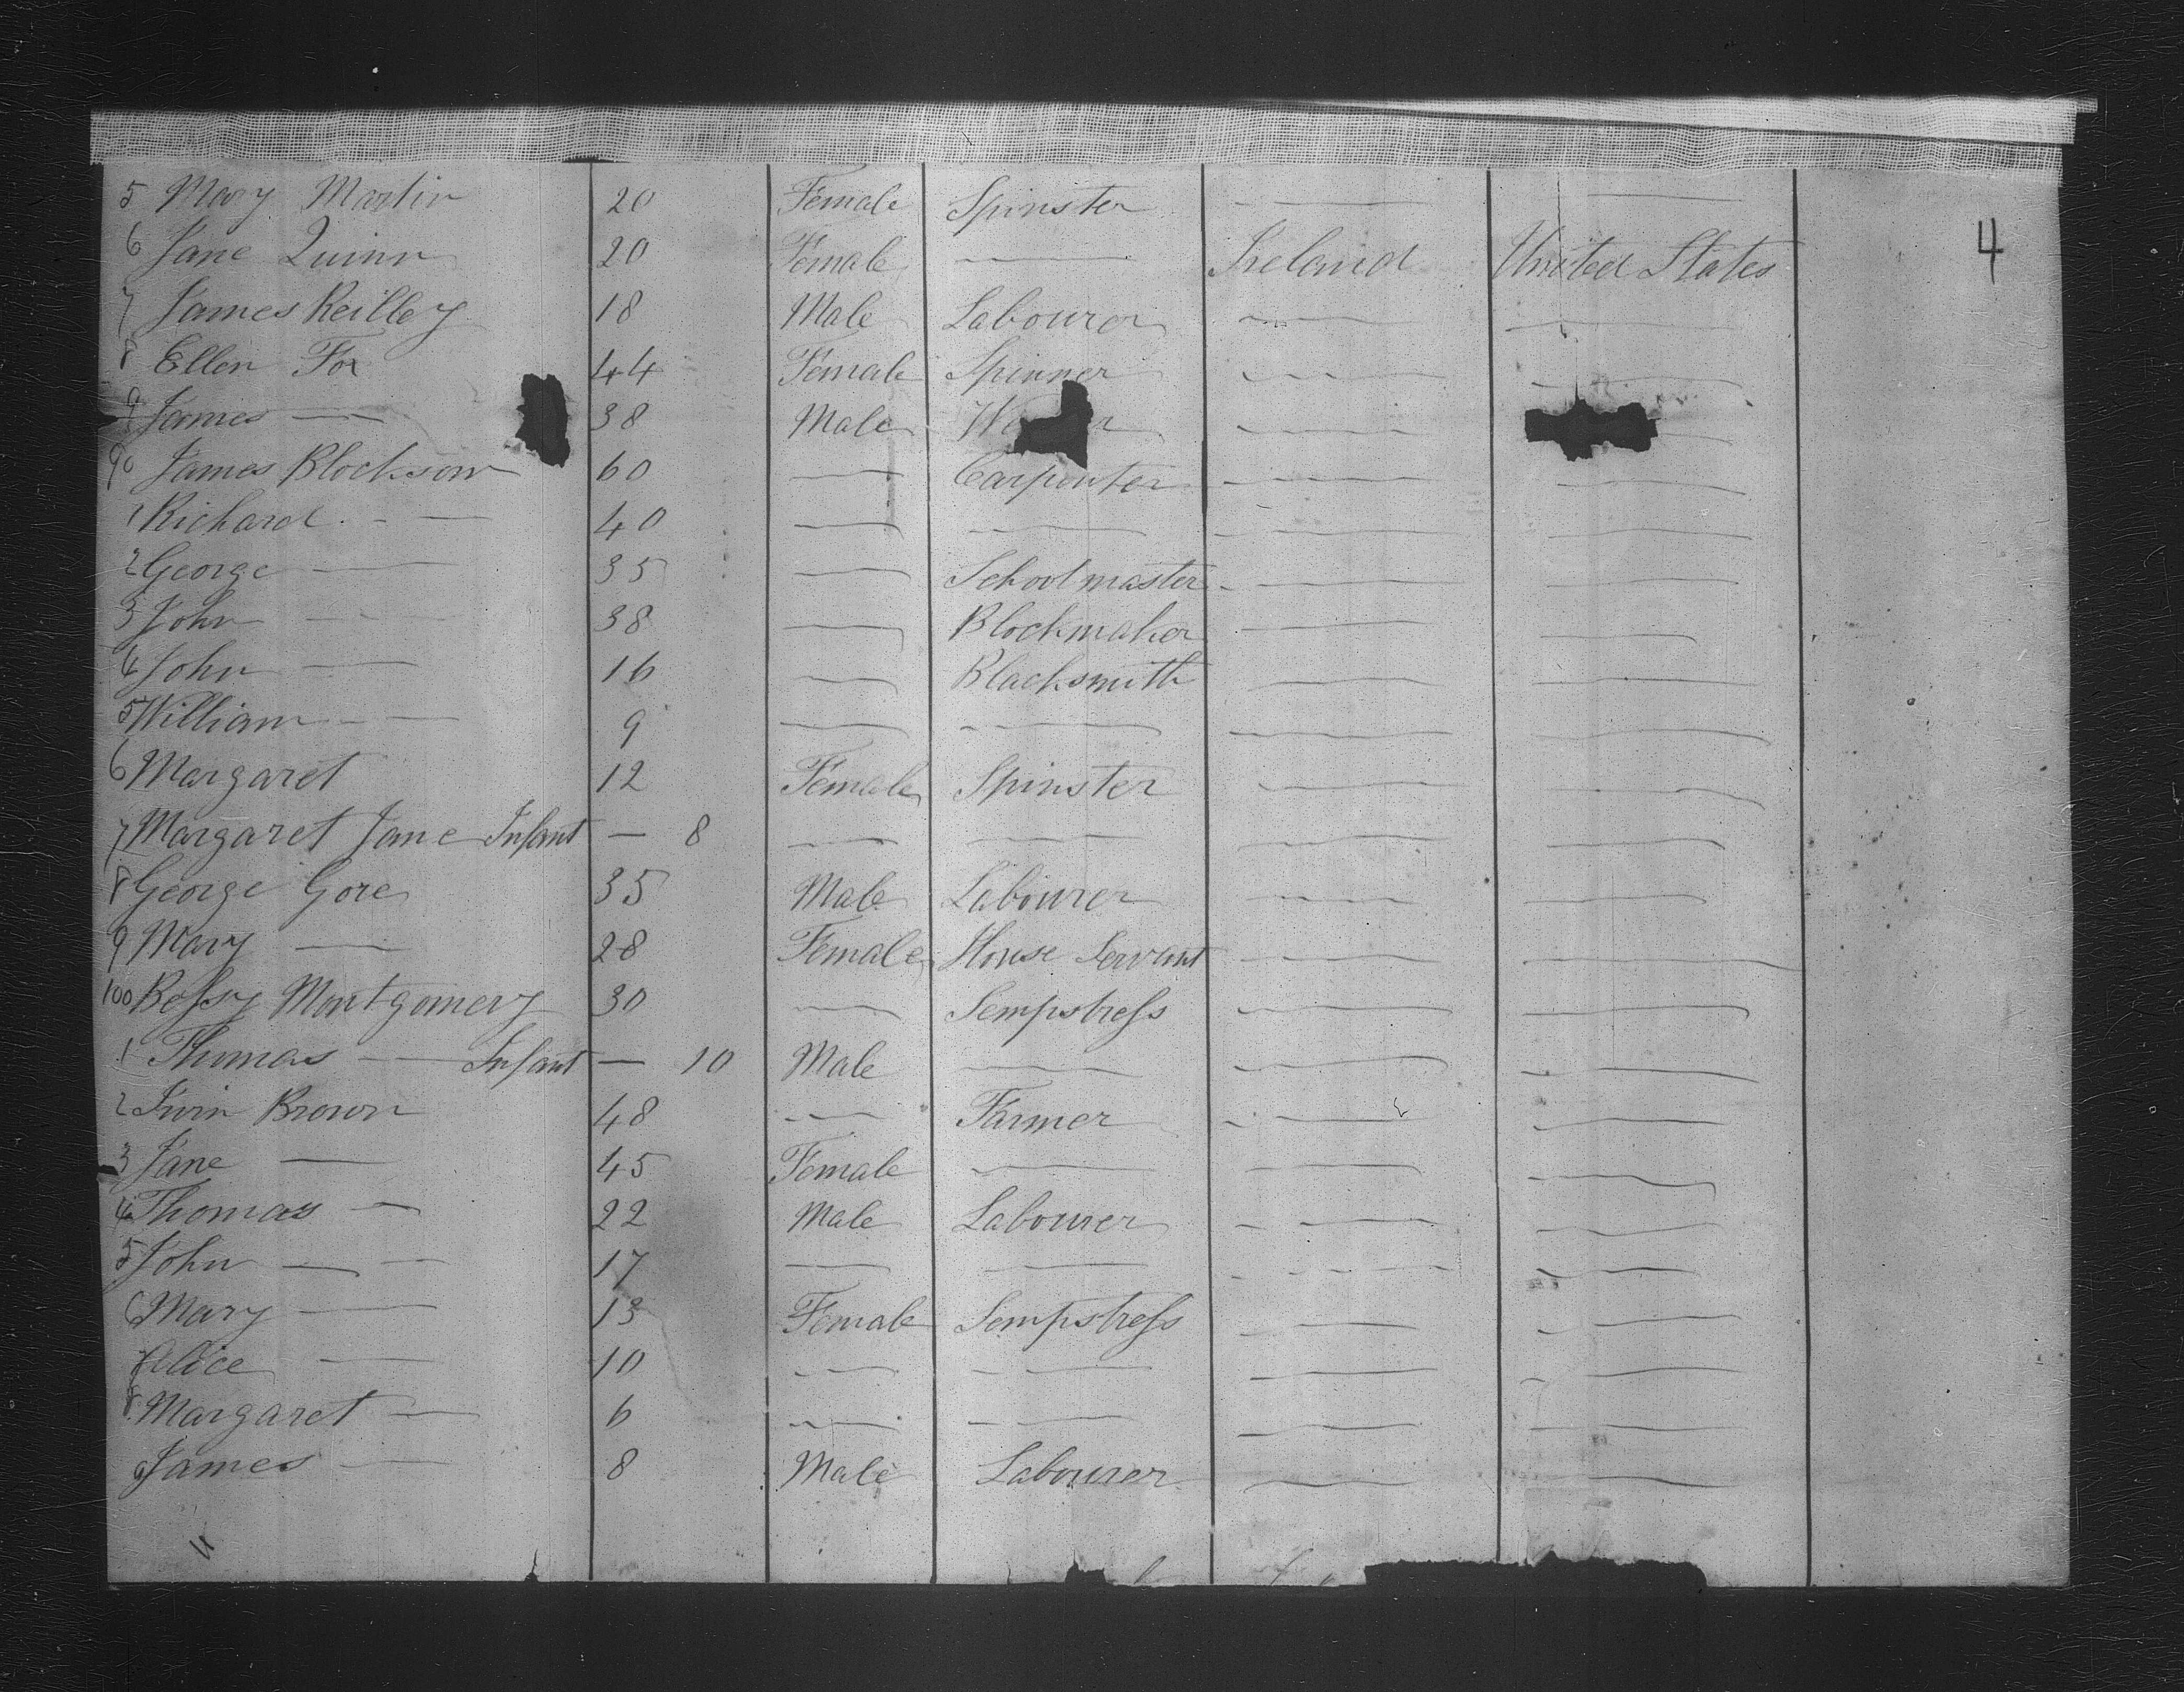 4
5 Mary Martin 20 Female Spinster — —
6 Jane Quinn 20 Female — Ireland United States
7 James Reilley 18 Male Labourer — —
8 Ellen Fox 44 Female Spinner — —
9 James — 38 Male — —
90 James Blockson 60 — Carpenter — —
1 Richard — 40 — — — —
2 George — 35 — School master — —
3 John — 38 — Blockmaker — —
4 John — 16 — Blacksmith — —
5 William — 9 — — — —
6 Margaret 12 Female Spinster — —
7 Margaret Jane Infant — 8 — — — —
8 George Gore 35 Male Labourer — —
9 Mary — 28 Female House Servant — —
100 Bessy Montgomery 30 — Sempstress — —
1 Thomas — Infant — 10 Male — — —
2 Irvin Brown 48 — Farmer — —
3 Jane — 45 Female — — —
4 Thomas — 22 Male Labourer — —
5 John — 17 — — — —
6 Mary — 13 Female Sempstress — —
7 Alice — 10 — — — —
8 Margaret — 6 — — — —
9 James — 8 Male Labourer — —